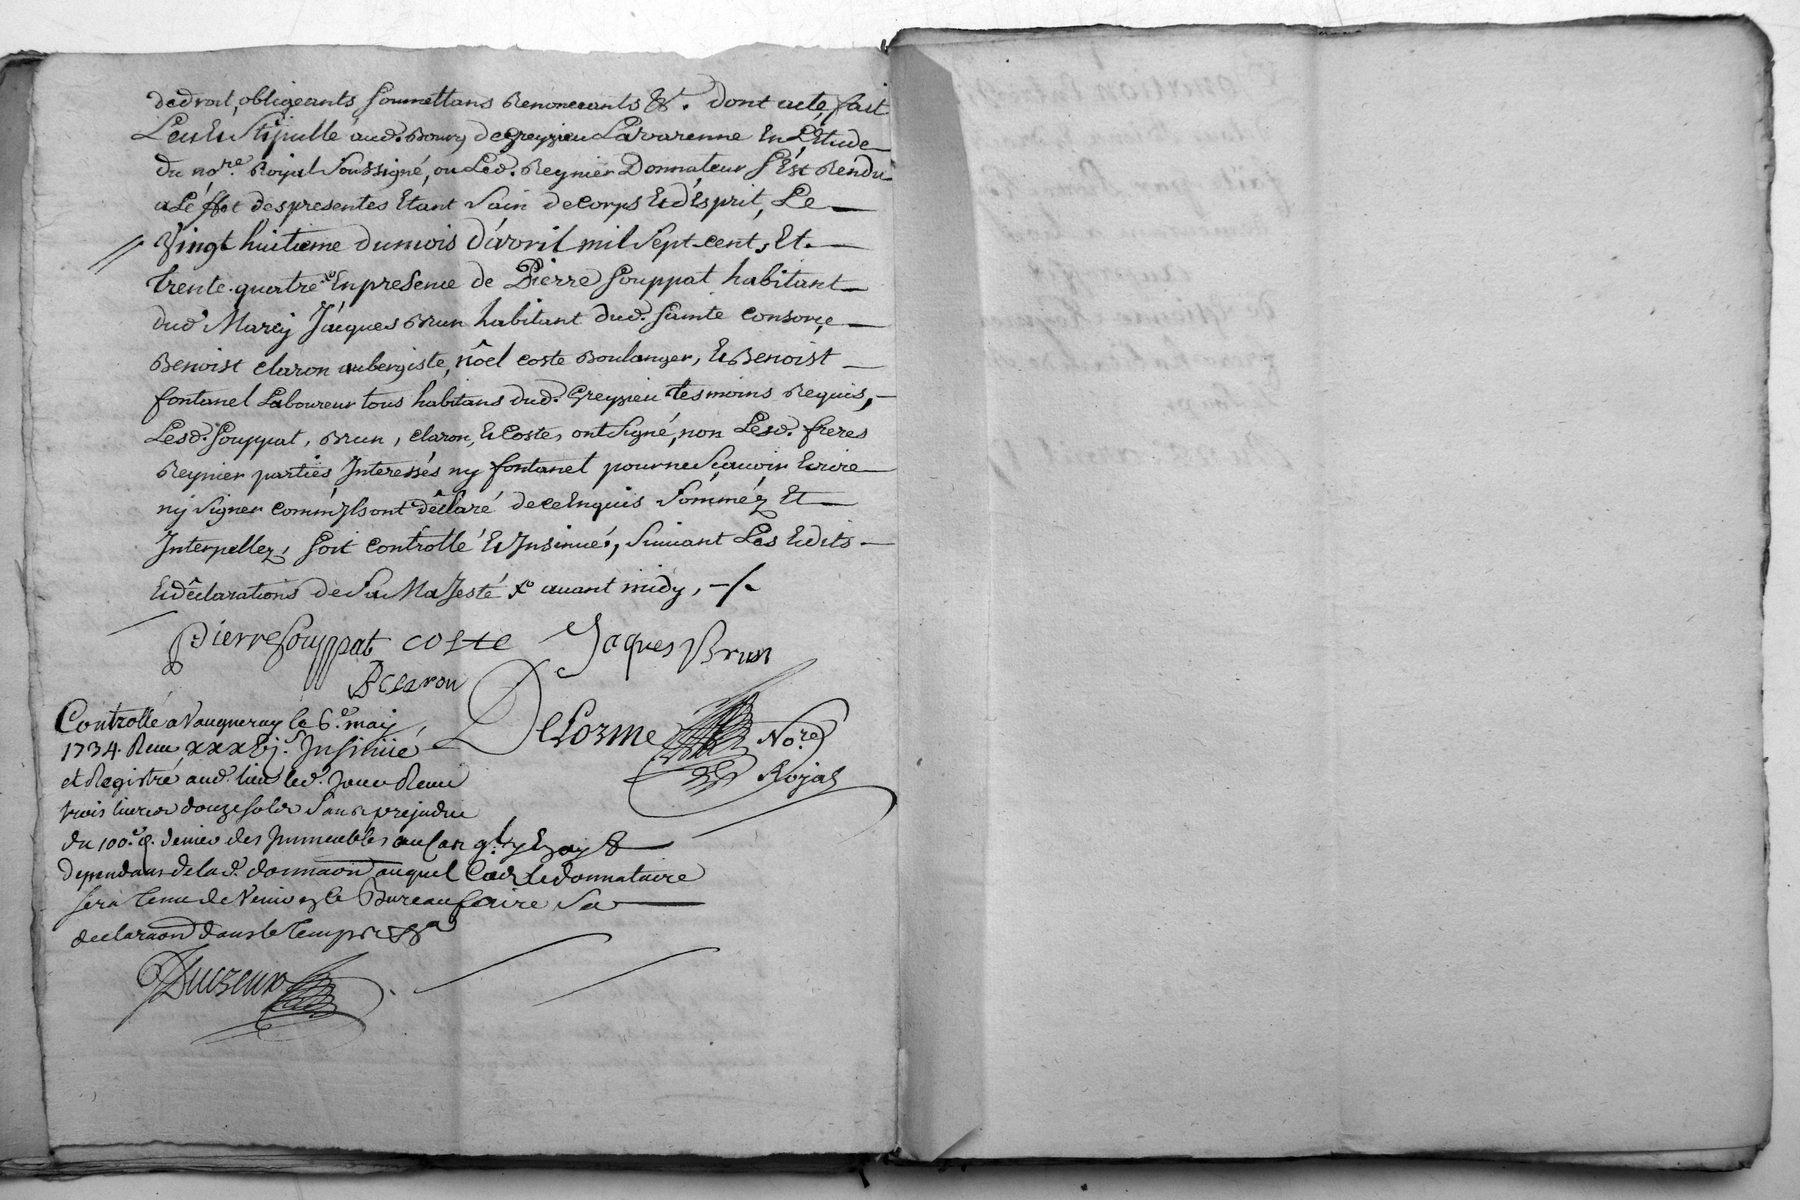 de droit, obligeants soumettans Renonceants &c. dont acte, fait
Leu Eu Stipullé aud. Bourg de Greyzieu Lavarenne En L'Etude
du nore. Royal Soussigné, ou Led. Reynier Donnateur S'Est Rendu
a L'effet des presentes Etant Sain de Corps Et d'Esprit, Le
Vingt huitieme du mois d'avril mil Sept cent, Et
trente quatre En presence de Pierre Souppat habitant
dud. Marcy Jacques Brun habitant dud. Sainte Consorce
Benoist Claron aubergiste, nöel Coste Boulanger, Et Benoist
fontanel Laboureur tous habitans dud. Greyzieu tesmoins Requis,
Lesd. Souppat, Brun, Claron, Et Coste, ont Signé, non Lesd. freres
Reynier parties Interessés ny fontanel pour ne Sçauoir Ecrire
ny Signer comm'Ils ont déclaré de ce Enquis Sommez Et
Interpellez, Soit Controllé Et Insinué, Suiuant Les Edits
Et déclarations de Sa Majesté avant midy,
Pierre Souppat Coste Jaques Brun
B Claron
DeLorme Nore
Royal
Controllé a Vaugneray le 6e may
1734. Receu xxxvj s. Insinüé
et Registré aud. lieu led. Jour Receu
trois liures douze sols Sans prejudice
du 100e. denier des Immeubles au Cas qu'il y En ay
dependans de la d. donnaon auquel Cas le donnataire
sera tenu de Venir au Bureau faire Sa
declaraon dans le temps